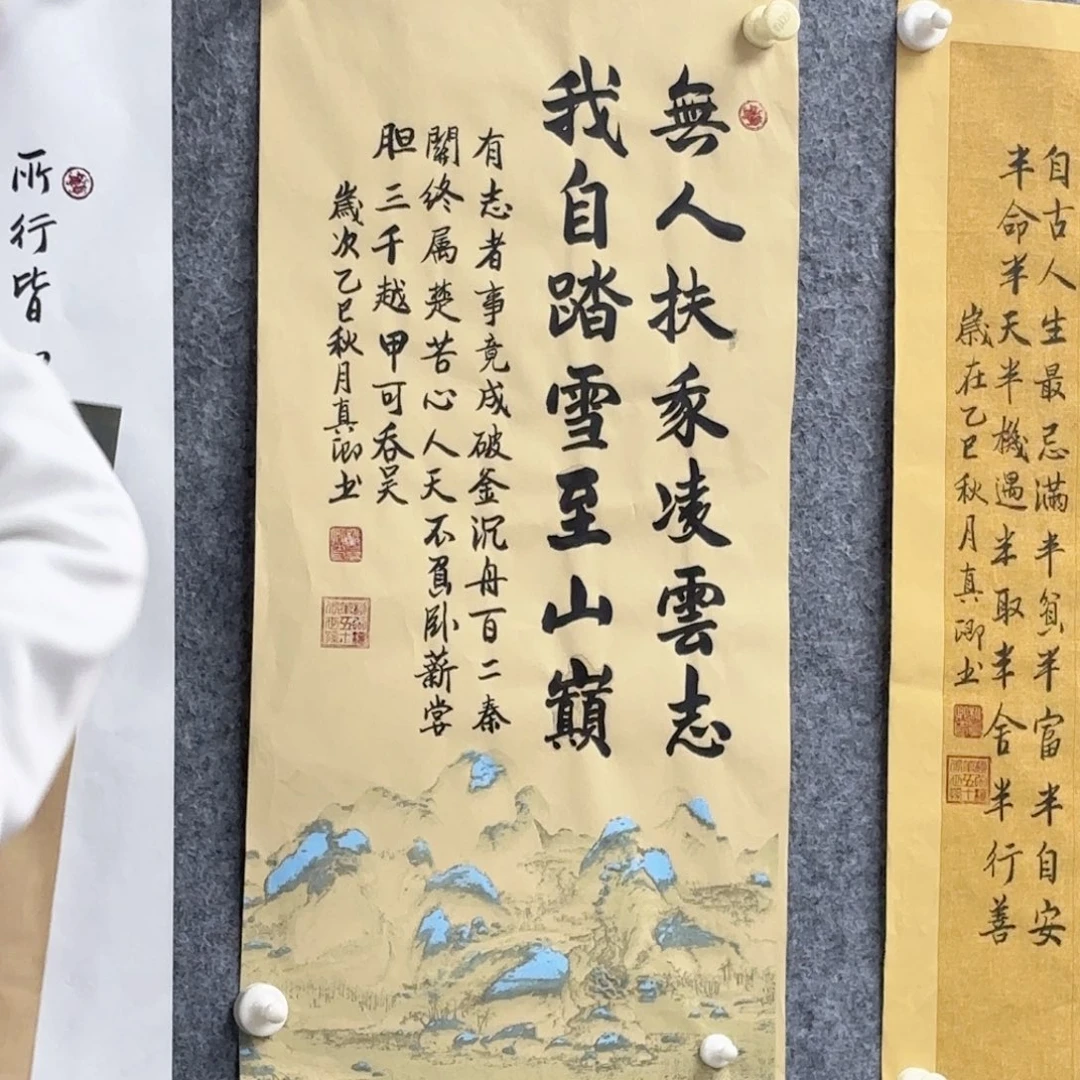 自古人生最忌满半貧半富半自安
半命半天半機遇半取半舍半行善
歲在乙巳秋月真卿书
無人扶我凌雲志
我自踏雪至山巔
有志者事竟成破釜沉舟百二秦
關终属楚苦心人天不負卧薪尝
胆三千越甲可吞吴
歲次乙巳秋月真卿书
所行皆